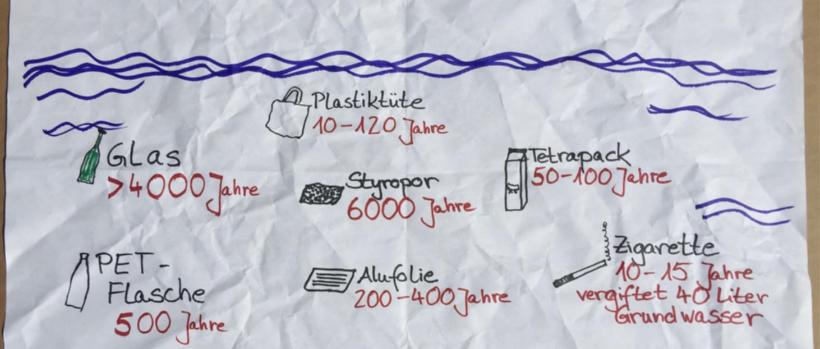 Plastiktüte
10-120 Jahre
Glas
>4000 Jahre
Styropor
6000 Jahre
Tetrapack
50-100 Jahre
PET-
Flasche
500 Jahre
Alufolie
200-400 Jahre
Zigarette
10-15 Jahre
vergiftet 40 Liter
Grundwasser